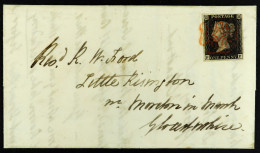 POSTAGE
Revd. R. W. Ford
Little Risington
nr Moreton in Marsh
Gloucestershire.
ONE PENNY